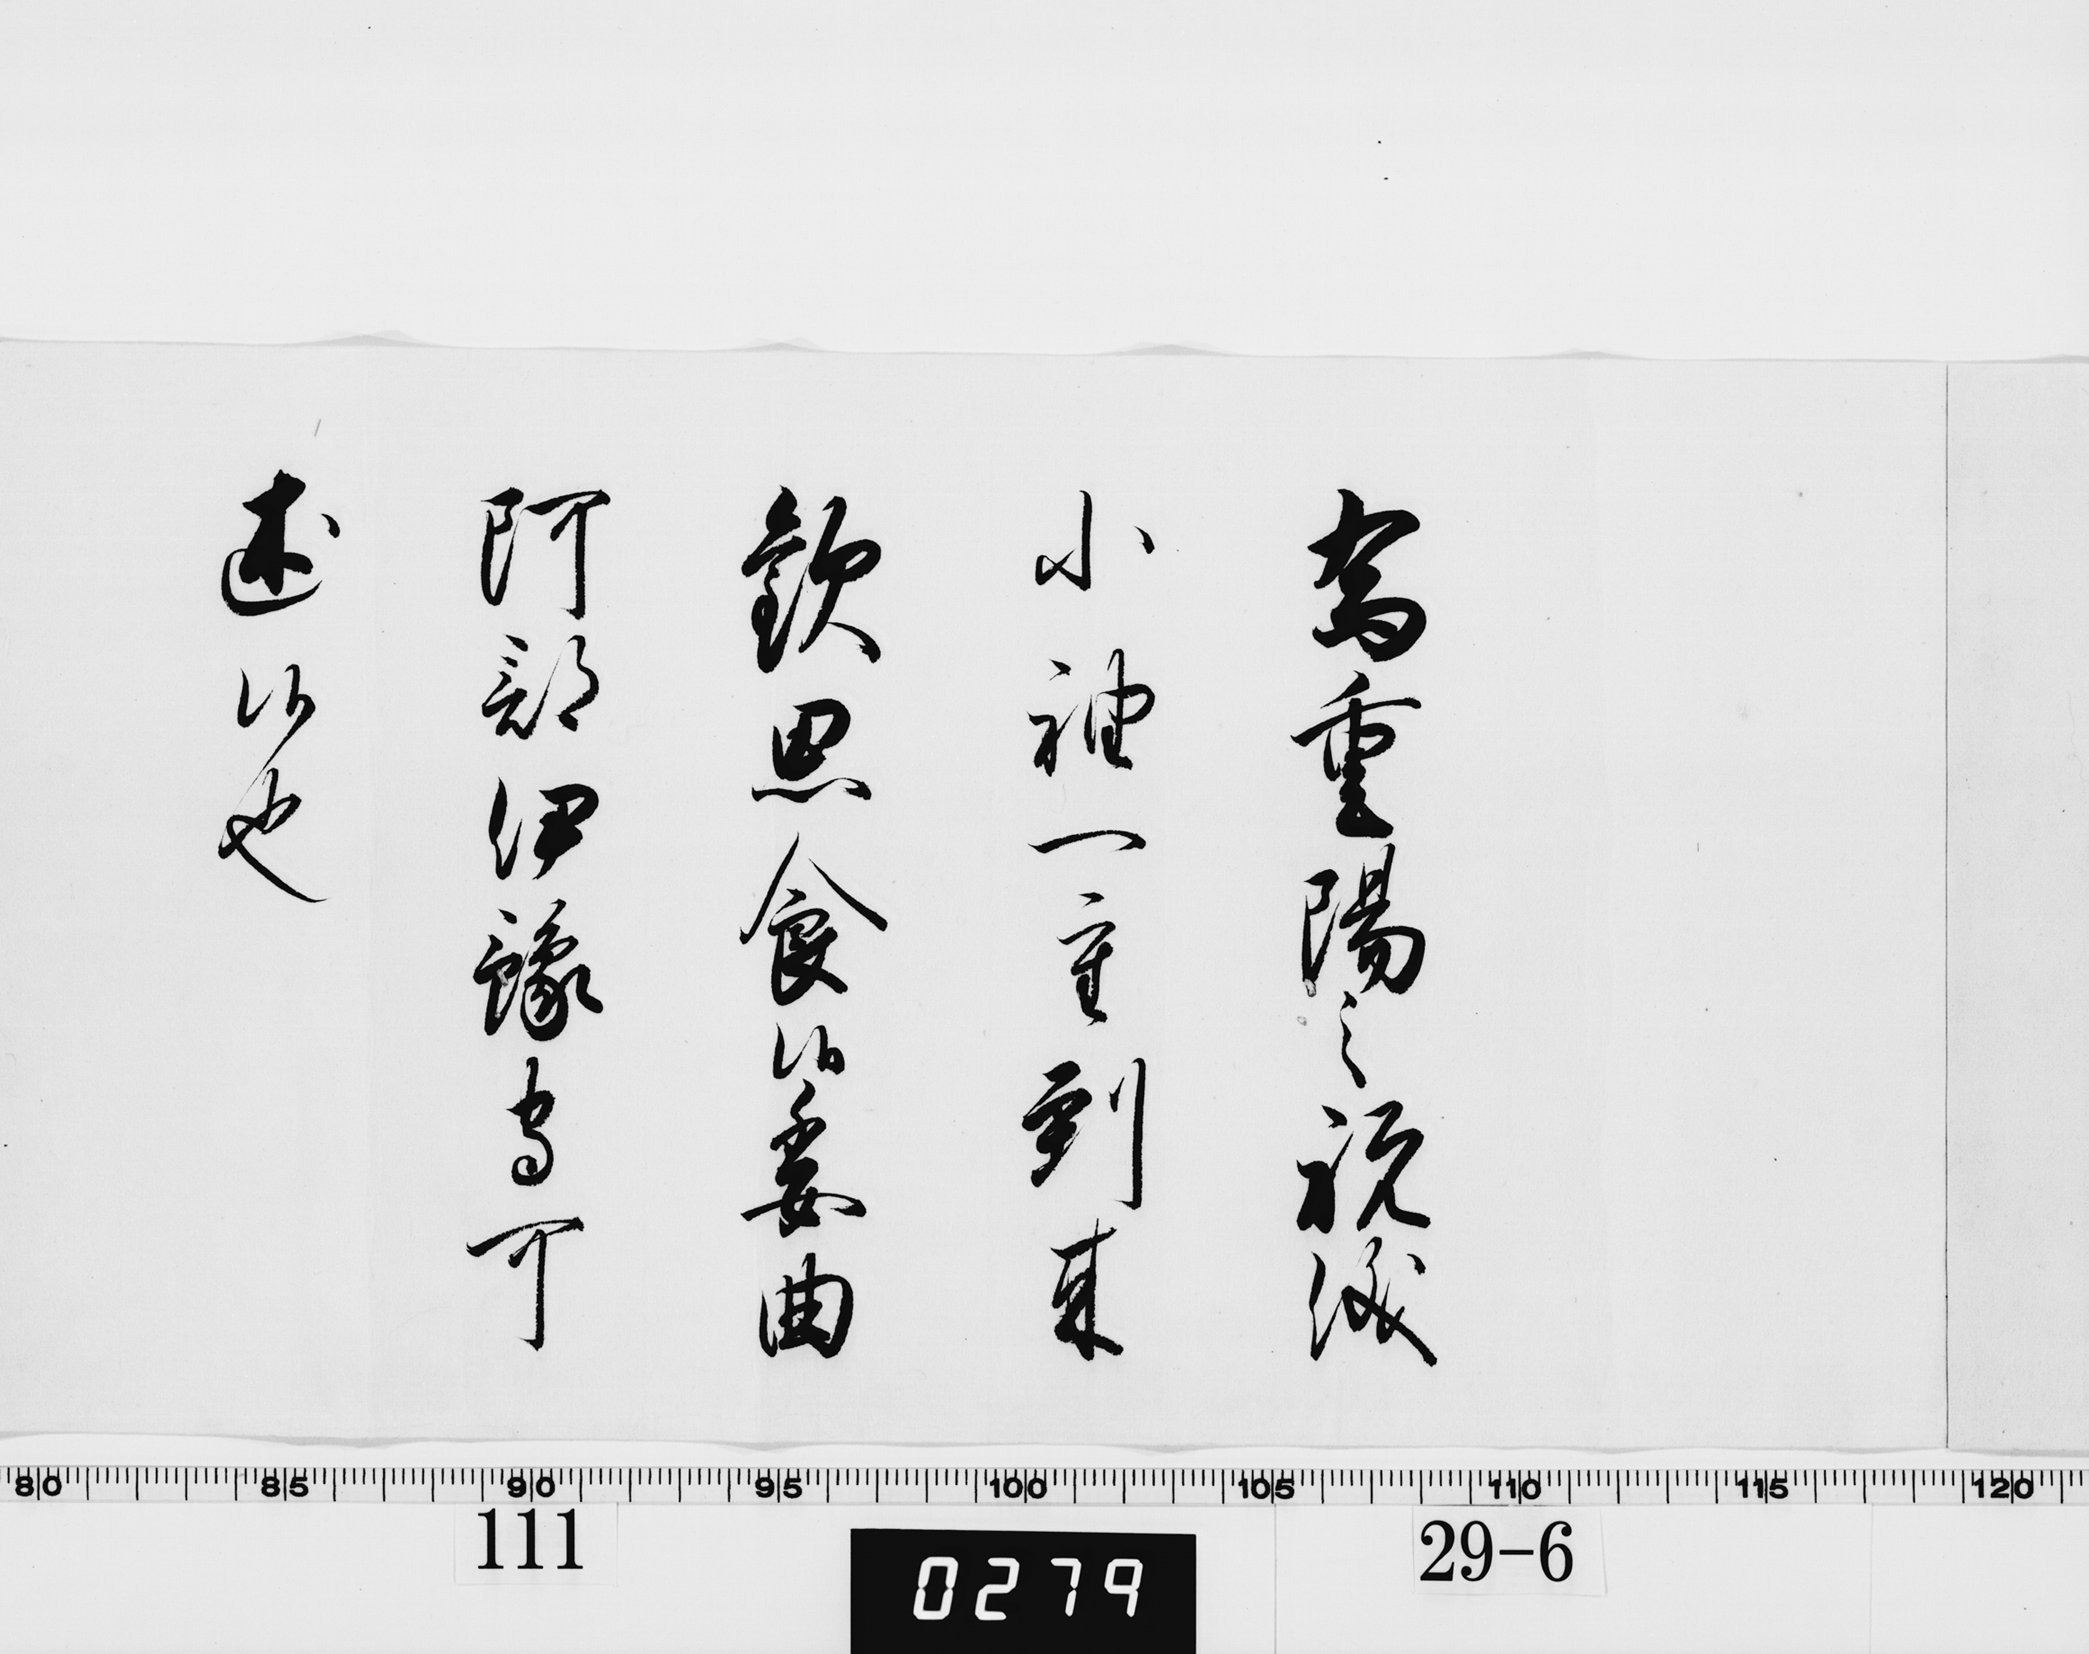 為重陽之祝儀
小袖一重到来
歓思食候委曲
阿部伊豫守可
述候也
80 85 90 95 100 105 110 115 120
111
0279
29-6